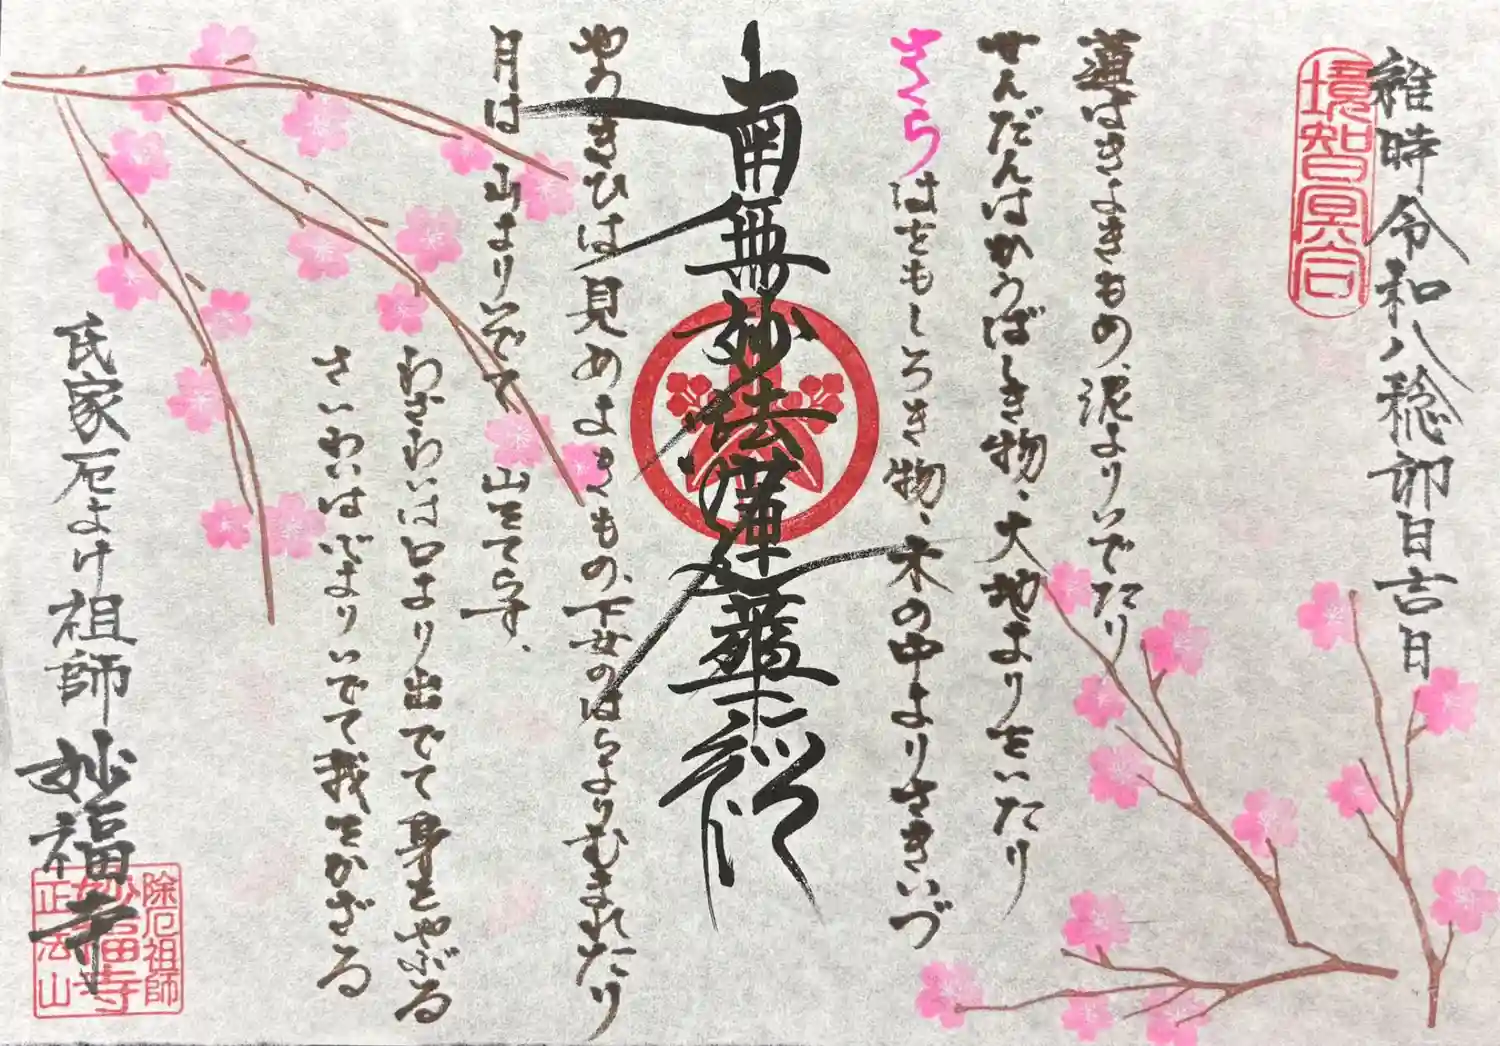 維時令和八稔卯日吉日
境智冥合
蓮はきよきもの、泥よりいでたり
せんだんはかうばしき物、大地よりをいたり
さくらはをもしろき物、木の中よりさきいづ
南無妙法蓮華経
やうきひは見めよきもの、下女のはらよりむまれたり
月は山よりいでて山をてらす、
わざわいは口より出でて身をやぶる
さいわいは心よりいでて我をかざる
氏家厄よけ祖師 妙福寺
除厄祖師
妙福寺
正法山